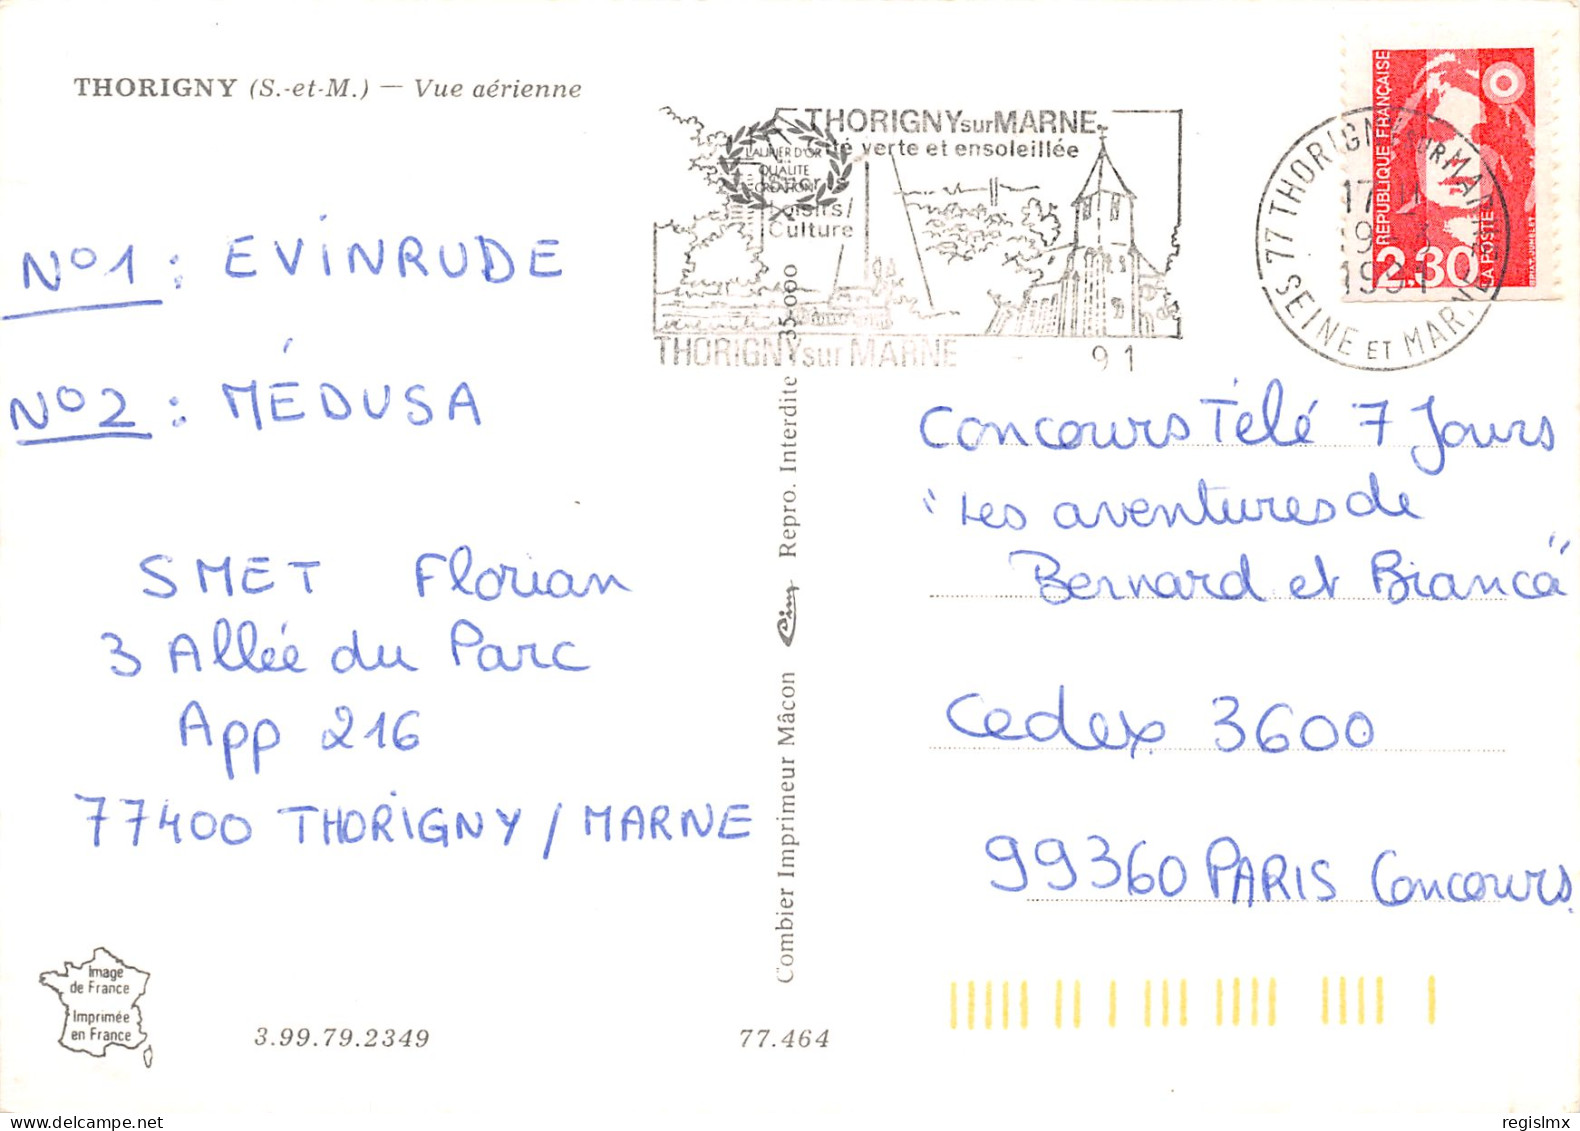 THORIGNY (S.-et-M.) — Vue aérienne
THORIGNY sur MARNE
Cité verte et ensoleillée
LAURIER D'OR
QUALITE
CREATION
Loisirs/
Culture
THORIGNY sur MARNE
91
77 THORIGNY SUR MARNE
17 H
19 - 3
1991
SEINE ET MARNE
RÉPUBLIQUE FRANÇAISE
2,30
LA POSTE
N°1 : EVINRUDE
N°2 : MÉDUSA
SMET Florian
3 Allée du Parc
App 216
77400 THORIGNY / MARNE
Combier Imprimeur Mâcon Cim Repro. Interdite 35-000
Concours Télé 7 Jours
"Les aventures de
Bernard et Bianca"
Cedex 3600
99360 PARIS Concours
Image
de France
Imprimée
en France
3.99.79.2349
77.464
regislmx